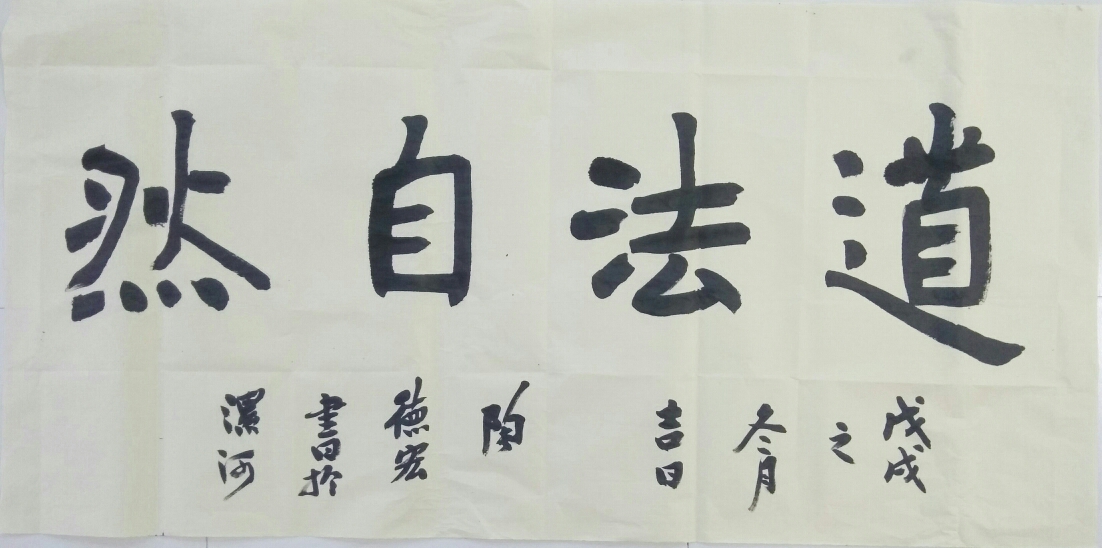 道法自然
戊戌
之
冬月
吉日
陶
德宏
書於
漯河